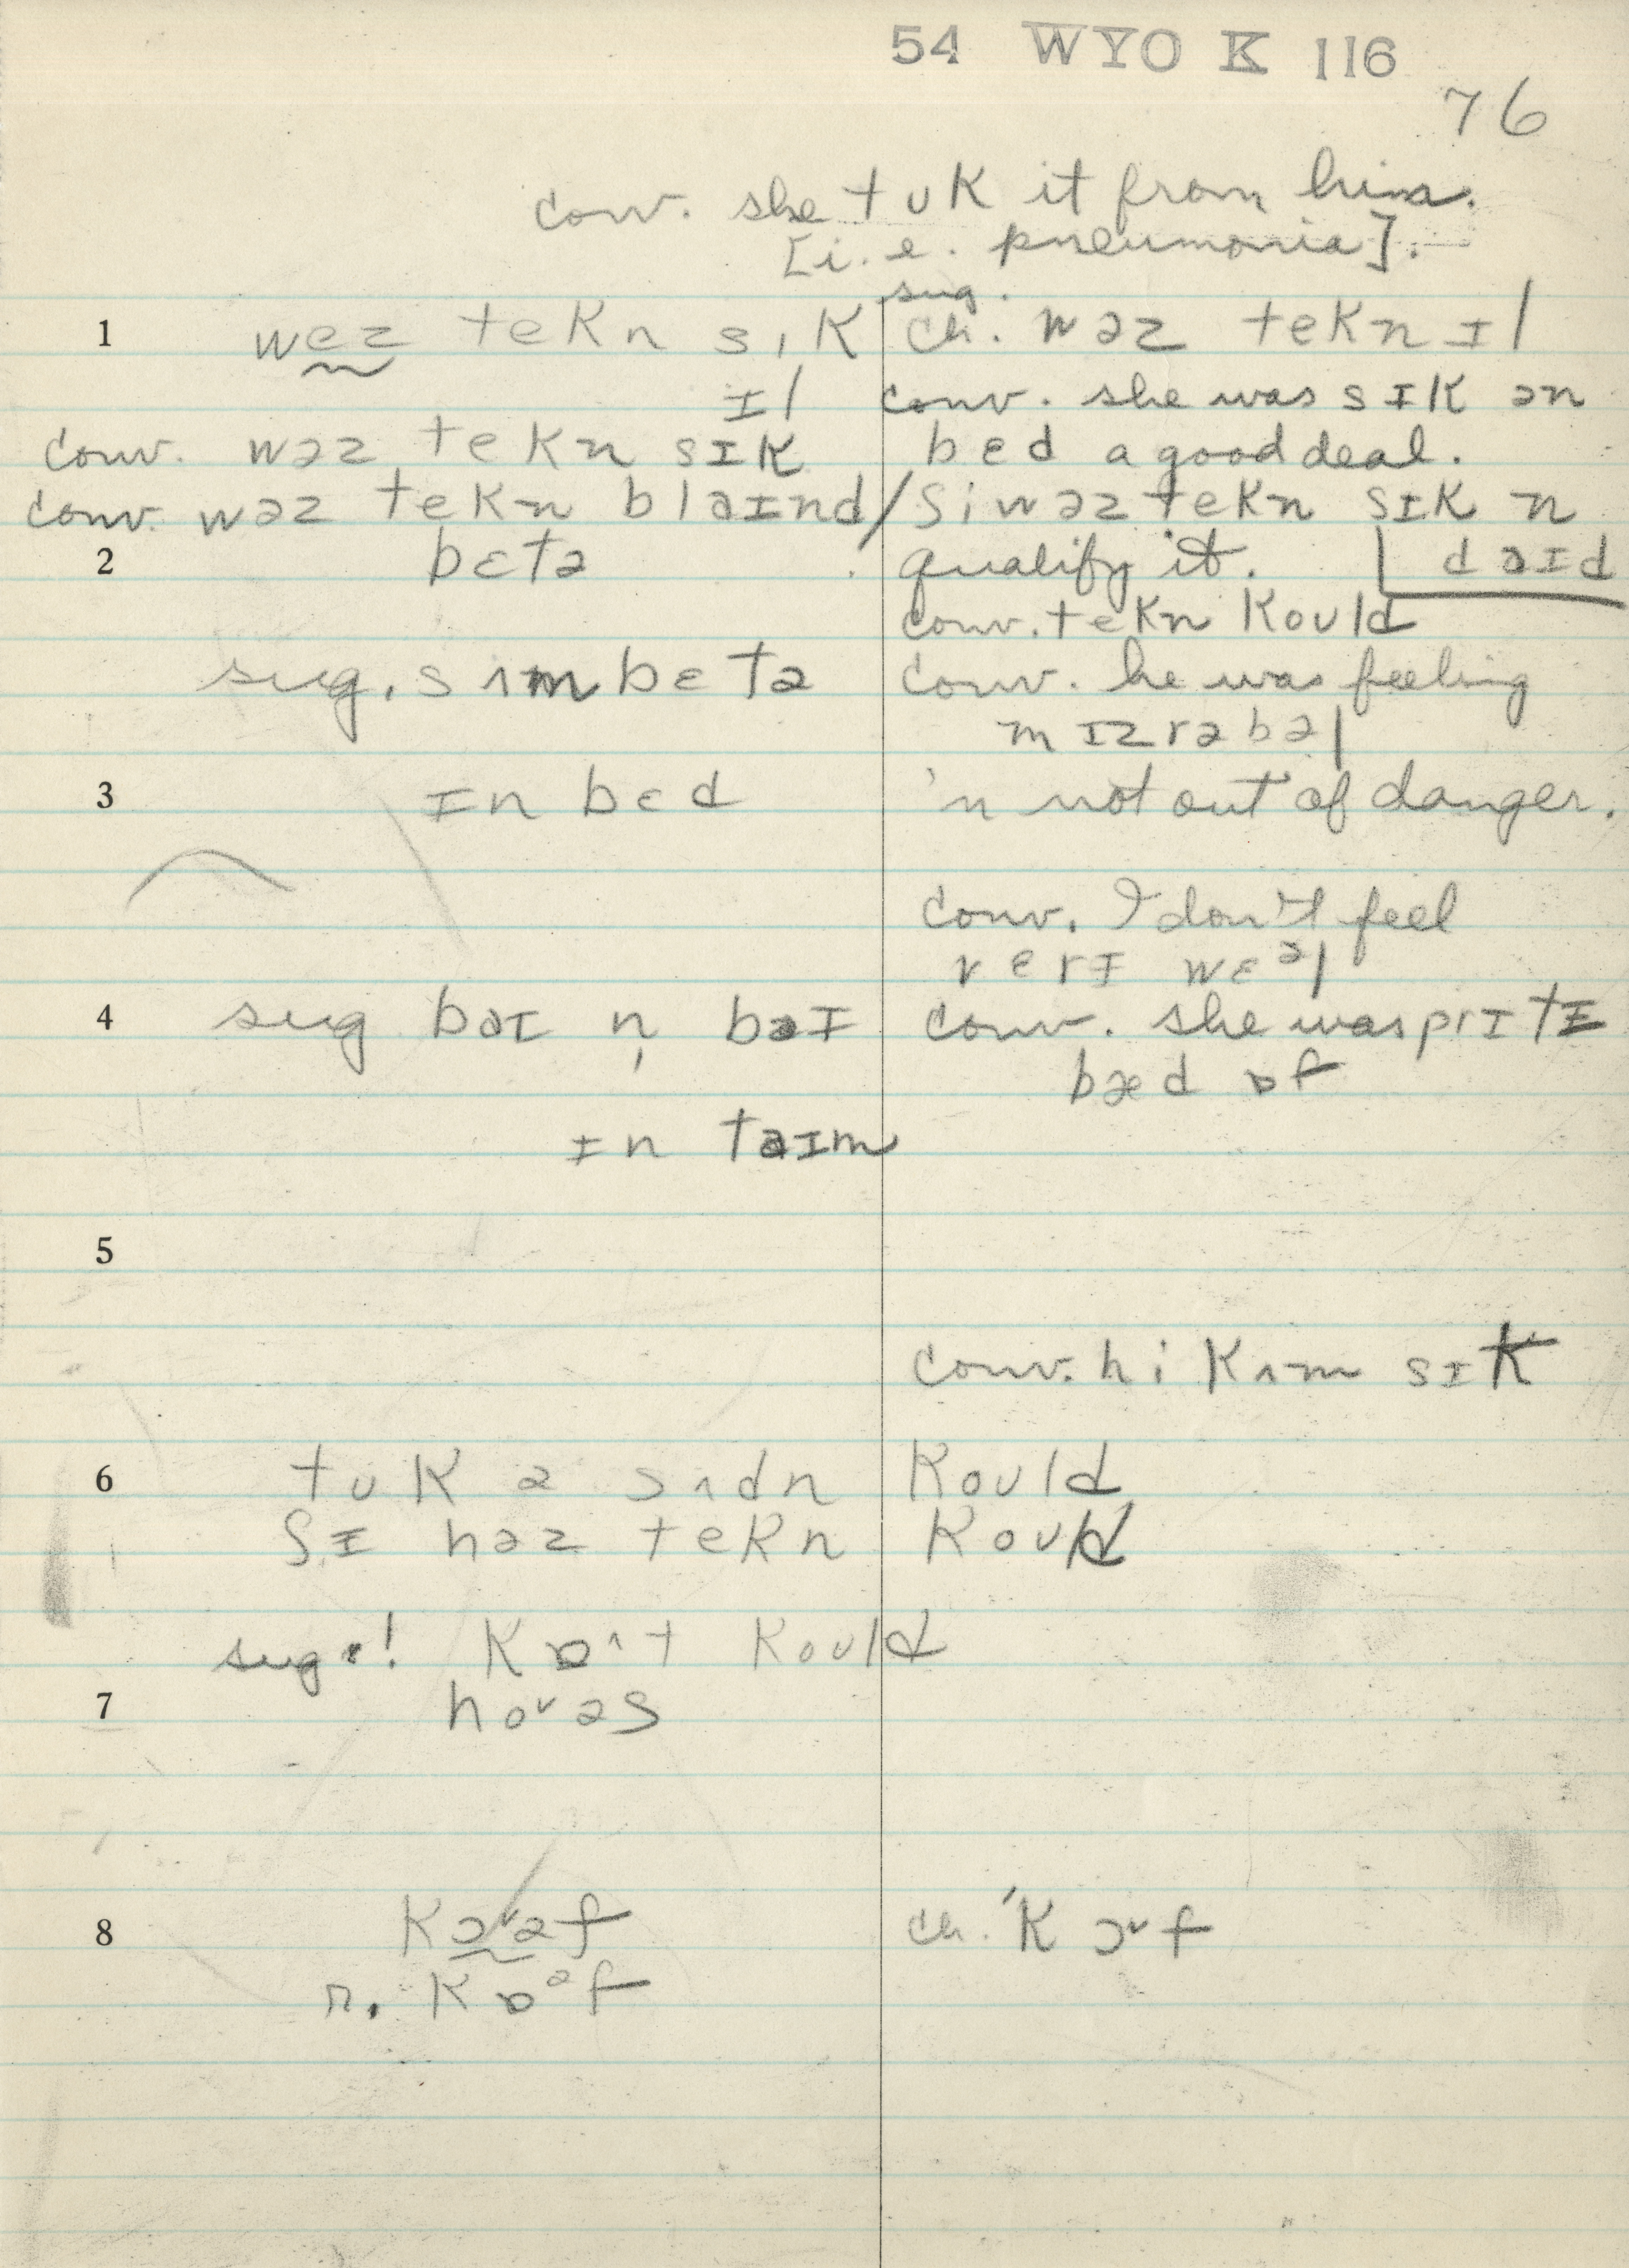 54 WYO K 116
76
conv. she tʊk it from him.
[i.e. pneumonia].
sug.
1 wez tekn sɪk ch. wəz tekn ɪl
ɪl conv. she was sɪk ən
conv. wəz tekn sɪk bɛd a good deal.
conv. wəz tekn blaɪnd / ʃi wəz tekn sɪk n
2 bɛtə qualify it. daɪd
conv. tekn kould
sug. sʌm bɛtə conv. he was feeling
mɪzrəbəl
3 ɪn bɛd 'n not out of danger.
conv. I don't feel
verɪ wɛᵊl
4 sug baɪ n̩ baɪ conv. she was prɪtɪ
bæd ɒf
ɪn taɪm
5
conv. hi kʌm sɪk
6 tʊk ə sʌdn kould
ʃɪ həz tekn kould
sug.! kɒ^t kould
7 hoᵛəs
8 kɔᵛəf ch. 'kɔᵛf
r. kɒᵊf